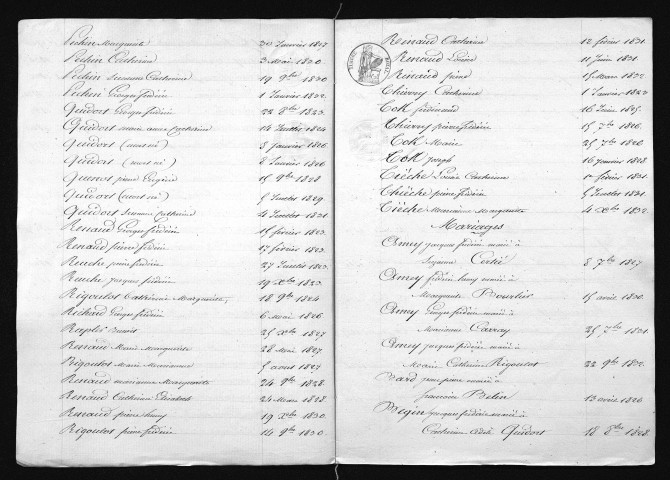 Péchin Marguerite 30 Janvier 1827
Péchin Catherine 3 Mai 1830.
Péchin Suzanne Catherine 19 9bre 1830
Péchin George frédéric 1 Janvier 1832.
Quidort George frédéric 22 8bre 1823.
Quidort marie anne Catherine 14 Juillet 1824
Quidort (mort né) 8 Janvier 1826
Quidort (mort né) 8 Janvier 1826
pierre Eugène 15 9bre 1828
Quidort (mort né) 5 Juillet 1829.
Quidort Suzanne Catherine 4 Juillet 1831.
Renaud George frédéric 15 février 1823.
Renaud pierre frédéric 17 février 1823.
Reuche pierre frédéric 27 Juillet 1823.
Reuche jacques frédéric 19 Xbre 1823.
Rigoulot Catherine Marguerite, 18 9bre 1824
Richard George frédéric 6 Mai 1826
Benoit 25 Xbre 1827
Renaud Marie Marguerite 28 Mai 1827
Rigoulot Marie Marianne 5 août 1827
Renaud marianne Marguerite 24 9bre 1828.
Renaud Catherine Elisabeth 24 Mars 1830.
Renaud pierre henry 19 Xbre 1830.
Rigoulot pierre frédéric 14 9bre 1830.
Renaud Catherine 12 février 1831.
Renaud Louise 11 Juin 1831.
Renaud pierre 15 Mars 1832
Thievry Catherine 1 Janvier 1823
Tok ferdinand 16 Juin 1825.
Thievry pierre frédéric 15 7bre 1826.
Tok Marie 25 7bre 1826
Tok Joseph 16 janvier 1828
Tièche Louise Catherine 1er février 1831.
Thièche pierre frédéric 5 Juillet 1831.
Tièche Marianne Marguerite 4 Xbre 1832.
Mariages
Amey jacques frédéric marié à
Suzanne 8 7bre 1827
Amey frédéric henry marié à
Marguerite Bourlier 15 avril 1830.
Amey George frédéric marié à
Marianne Carray 25 7bre 1831.
Amey jacques frédéric marié à
Marie Catherine Rigoulot 22 9bre 1832.
Bard jean pierre marié à
francoise Belin 13 avril 1826
Bégin jacques frédéric marié à
Catherine Quidort 18 8bre 1828.